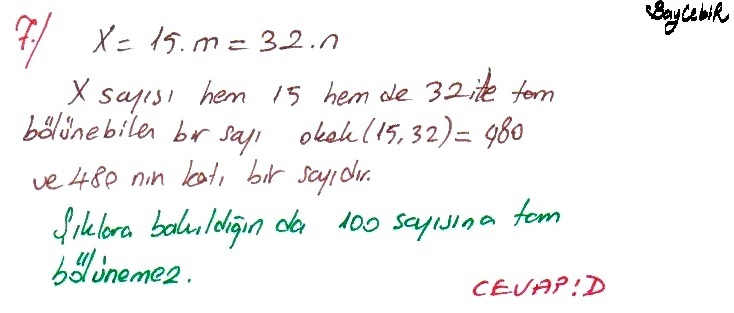 BayCebiR
7./ X = 15.m = 32.n
X sayısı hem 15 hem de 32 ile tam
bölünebilen bir sayı okek(15,32) = 480
ve 480 nin katı bir sayıdır.
Şıklara bakıldığın da 100 sayısına tam
bölünemez.
CEVAP: D